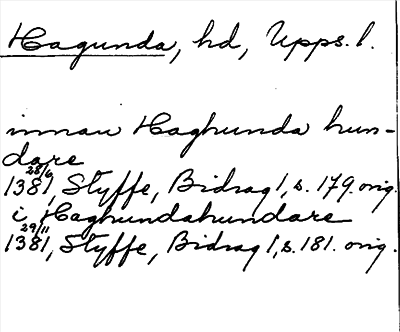 Hagunda, hd, Upps. l.
innan Haghunda hun-
dare
28/6
1381, Styffe, Bidrag 1, s. 179. orig.
i Haghundahundare
29/11
1381, Styffe, Bidrag 1, s. 181. orig.